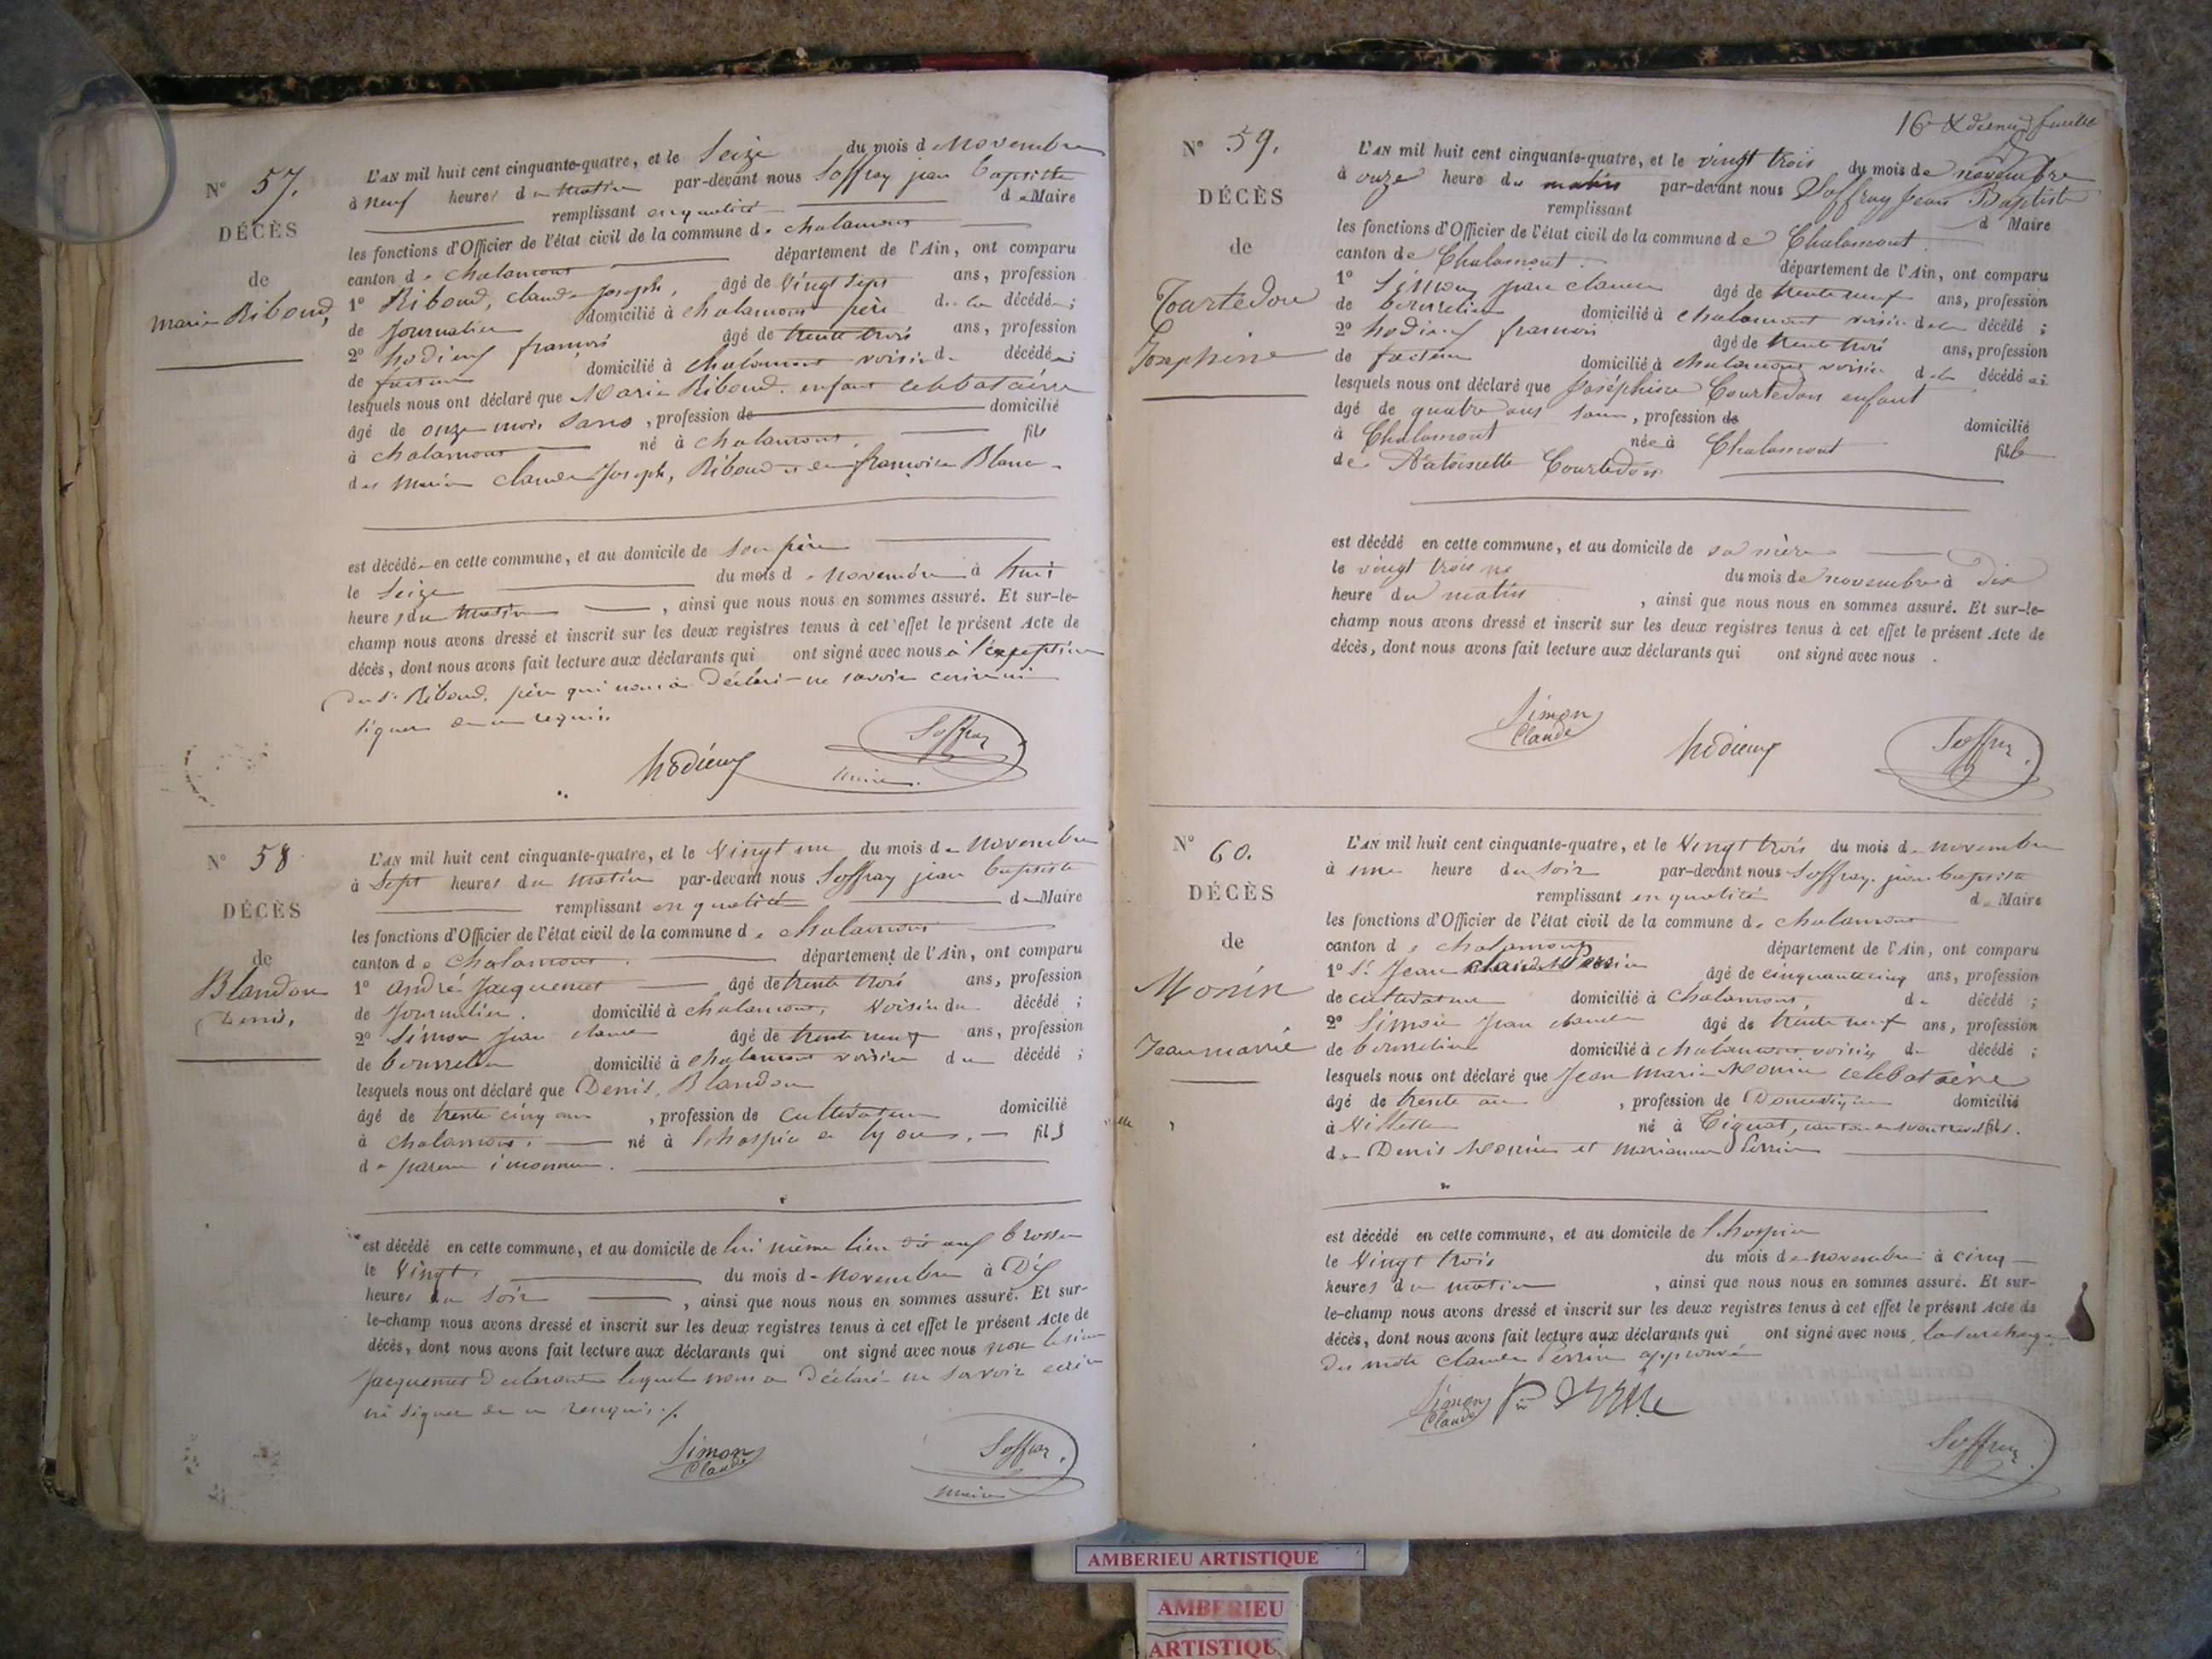 N° 57.
DÉCÈS
de
Marie Riboud,
L'AN mil huit cent cinquante-quatre, et le Seize du mois de Novembre
à neuf heures du matin par-devant nous Soffray jean baptiste
remplissant en qualité de Maire
les fonctions d'Officier de l'état civil de la commune de chalamont
canton de chalamont département de l'Ain, ont comparu
1° Riboud, claude joseph, âgé de Vingt sept ans, profession
de journalier domicilié à chalamont père de la décédée ;
2° hodieux françois âgé de trente trois ans, profession
de facteur domicilié à chalamont voisin de décédée ;
lesquels nous ont déclaré que Marie Riboud enfant celibataire
âgé de onze mois sans, profession de domicilié
à chalamont né à chalamont, fils
des mariés claude Joseph, Riboud et de françoise Blanc
est décédée en cette commune, et au domicile de son père
le Seize du mois de novembre à huit
heures du matin, ainsi que nous nous en sommes assuré. Et sur-le-
champ nous avons dressé et inscrit sur les deux registres tenus à cet effet le présent Acte de
décès, dont nous avons fait lecture aux déclarants qui ont signé avec nous à l'exception
du s. Riboud, père qui nous a déclaré ne savoir ecrire ni
signer de ce requis.
hodieux Soffray
maire.
N° 58
DÉCÈS
de
Blandon
Denis,
L'AN mil huit cent cinquante-quatre, et le Vingt un du mois de Novembre
à Sept heures du matin par-devant nous Soffray jean baptiste
remplissant en qualité de Maire
les fonctions d'Officier de l'état civil de la commune de chalamont
canton de chalamont. département de l'Ain, ont comparu
1° andré jacquemet âgé de trente trois ans, profession
de journalier. domicilié à chalamont, Voisin du décédé ;
2° Simon jean claude âgé de trente neuf ans, profession
de bourrelier domicilié à chalamont voisin du décédé ;
lesquels nous ont déclaré que Denis, Blandon
âgé de trente cinq ans, profession de cultivateur domicilié
à chalamont, né à l'hospice de lyon, fils
de parens
est décédé en cette commune, et au domicile de lui même lieu dit aux brosses
le Vingt, du mois de novembre à Dix
heures du Soir, ainsi que nous nous en sommes assuré. Et sur-
le-champ nous avons dressé et inscrit sur les deux registres tenus à cet effet le présent Acte de
décès, dont nous avons fait lecture aux déclarants qui ont signé avec nous non le sieur
Jacquemet déclarant lequel nous a déclaré ne savoir ecrire
ni signer de ce requis ./.
Simon
Claude
Soffray
maire
16e & dernier feuillet
N° 59.
DÉCÈS
de
Courtedon
Josephine
L'AN mil huit cent cinquante-quatre, et le vingt trois du mois de novembre
à onze heure du matin par-devant nous Soffray Jean Baptiste
remplissant d Maire
les fonctions d'Officier de l'état civil de la commune de Chalamont
canton de Chalamont. département de l'Ain, ont comparu
1° Simon jean claude âgé de trente neuf ans, profession
de bourrelier domicilié à chalamont voisin de la décédé ;
2° hodieux françois âgé de trente trois ans, profession
de facteur domicilié à chalamont voisin de la décédée ;
lesquels nous ont déclaré que Joséphine Courtedon enfant
âgé de quatre ans sans, profession de domicilié
à Chalamont née à Chalamont fille
de Antoinette Courtedon
est décédé en cette commune, et au domicile de sa mère
le vingt trois du mois de novembre à dix
heure du matin, ainsi que nous nous en sommes assuré. Et sur-le-
champ nous avons dressé et inscrit sur les deux registres tenus à cet effet le présent Acte de
décès, dont nous avons fait lecture aux déclarants qui ont signé avec nous.
Simon
Claude
hodieux Soffray
N° 60.
DÉCÈS
de
Monin
Jean marie
L'AN mil huit cent cinquante-quatre, et le Vingt trois du mois de novembre
à une heure du soir par-devant nous Soffray jean baptiste
remplissant en qualité de Maire
les fonctions d'Officier de l'état civil de la commune de chalamont
canton de chalamont département de l'Ain, ont comparu
1° S. Jean claude Perrin âgé de cinquante cinq ans, profession
de cultivateur domicilié à chalamont, d décédé ;
2° Simon jean claude âgé de trente neuf ans, profession
de bourrelier domicilié à chalamont voisin du décédé ;
lesquels nous ont déclaré que Jean Marie Monin celebataire
âgé de trente ans, profession de Domestique domicilié
à Villette né à fils
de Denis Monin et marianne Perrin
est décédé en cette commune, et au domicile de l'hospice
le Vingt trois du mois de novembre à cinq
heures du matin, ainsi que nous nous en sommes assuré. Et sur-
le-champ nous avons dressé et inscrit sur les deux registres tenus à cet effet le présent Acte de
décès, dont nous avons fait lecture aux déclarants qui ont signé avec nous, la surcharge
des mots claude Perrin approuvée
Simon
Claude
Soffray
AMBERIEU ARTISTIQUE
AMBERIEU
ARTISTIQUE